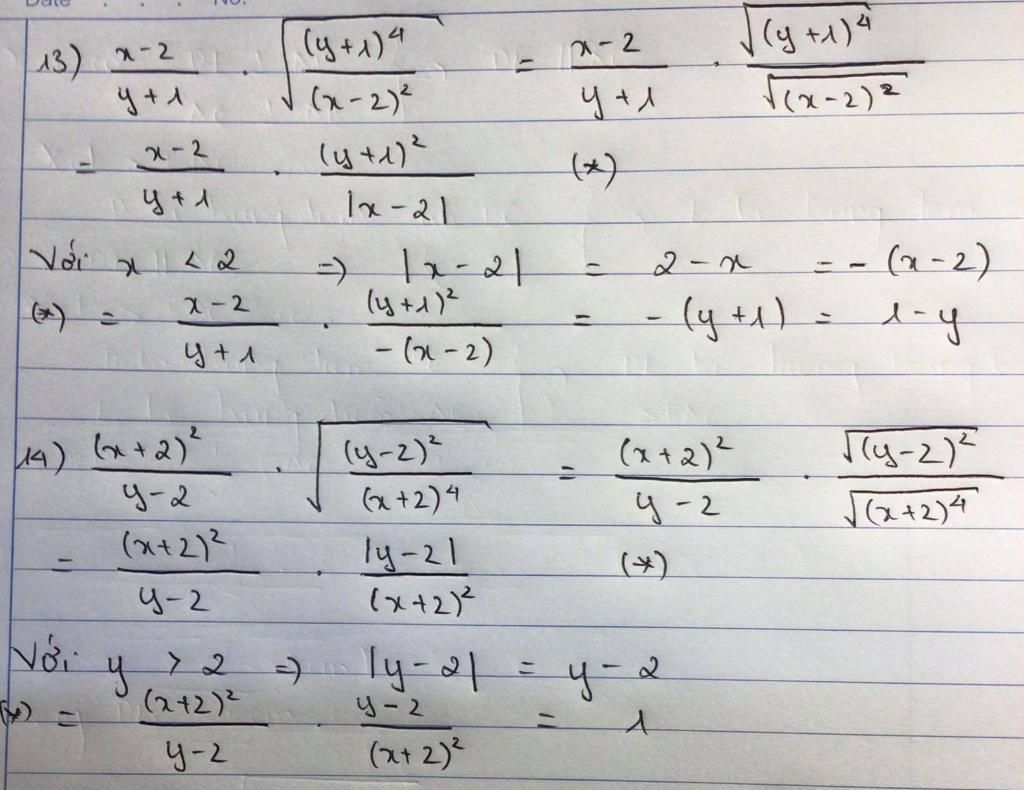 Date . . . No.
13) \frac{x-2}{y+1} . \sqrt{\frac{(y+1)^4}{(x-2)^2}} = \frac{x-2}{y+1} . \frac{\sqrt{(y+1)^4}}{\sqrt{(x-2)^2}}
= \frac{x-2}{y+1} . \frac{(y+1)^2}{|x-2|} (*)
Với x < 2 => |x-2| = 2-x = -(x-2)
(*) = \frac{x-2}{y+1} . \frac{(y+1)^2}{-(x-2)} = -(y+1) = 1-y
14) \frac{(x+2)^2}{y-2} . \sqrt{\frac{(y-2)^2}{(x+2)^4}} = \frac{(x+2)^2}{y-2} . \frac{\sqrt{(y-2)^2}}{\sqrt{(x+2)^4}}
= \frac{(x+2)^2}{y-2} . \frac{|y-2|}{(x+2)^2} (*)
Với y > 2 => |y-2| = y-2
(*) = \frac{(x+2)^2}{y-2} . \frac{y-2}{(x+2)^2} = 1